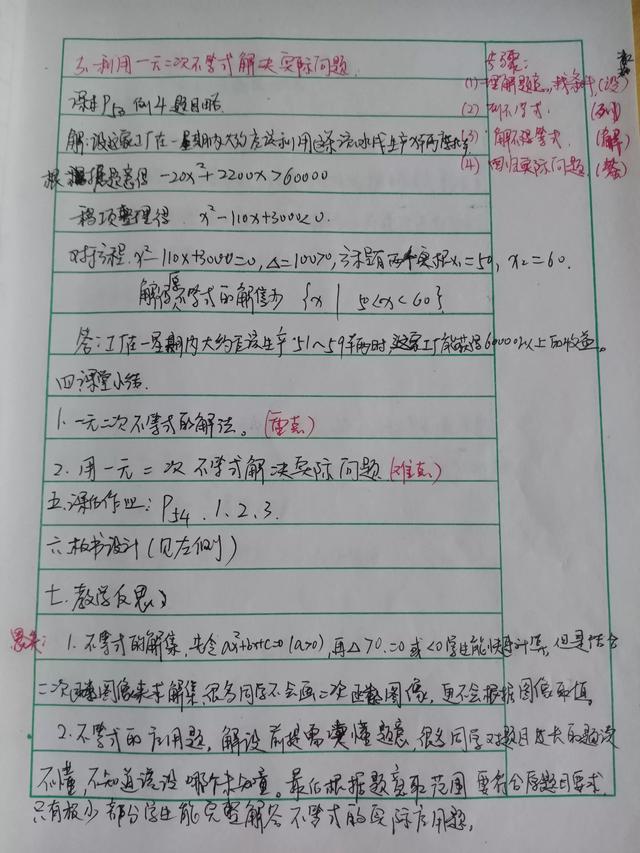 3. 利用一元二次不等式解决实际问题.
课本P53 例4 题目略.
解:设这家工厂在一星期内大约应该利用这条流水线生产x辆摩托车
根据题意得 -20x²+2200x>60000
移项整理得 x²-110x+3000<0.
对于方程 x²-110x+3000=0, Δ=100>0, 方程有两个实根x₁=50, x₂=60.
解得原不等式的解集为 {x | 50<x<60}
答:工厂在一星期内大约应该生产51~59辆时,这家工厂能获得60000以上的收益。
四.课堂小结.
1.一元二次不等式的解法。(重点)
2. 用一元二次不等式解决实际问题(难点)
五.课后作业: P54 . 1、2、3.
六.板书设计(见左侧)
七.教学反思:
1. 不等式的解集,先令ax²+bx+c=0 (a>0),再Δ>0.=0或<0学生能快速计算,但是结合
二次函数图像来求解集,很多同学不会画二次函数图像,更不会根据图像取值.
2.不等式的应用题,解设前提需读懂题意,很多同学对题目过长的题读
不懂,不知道该设哪个未知量。最后根据题意取范围要符合原题目要求.
只有极少部分学生能完整解答不等式的实际应用题.
步骤:
(1) 理解题意,找条件(设)
(2) 列不等式. (列)
(3) 解不等式. (解)
(4) 回归实际问题 (答)